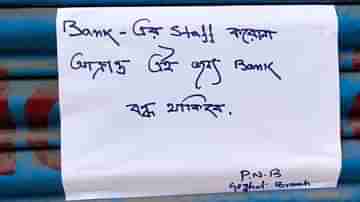 Bank - এর Staff করোনা
আক্রান্ত এই জন্য Bank
বন্ধ থাকিবে.
P.N.B
Branch